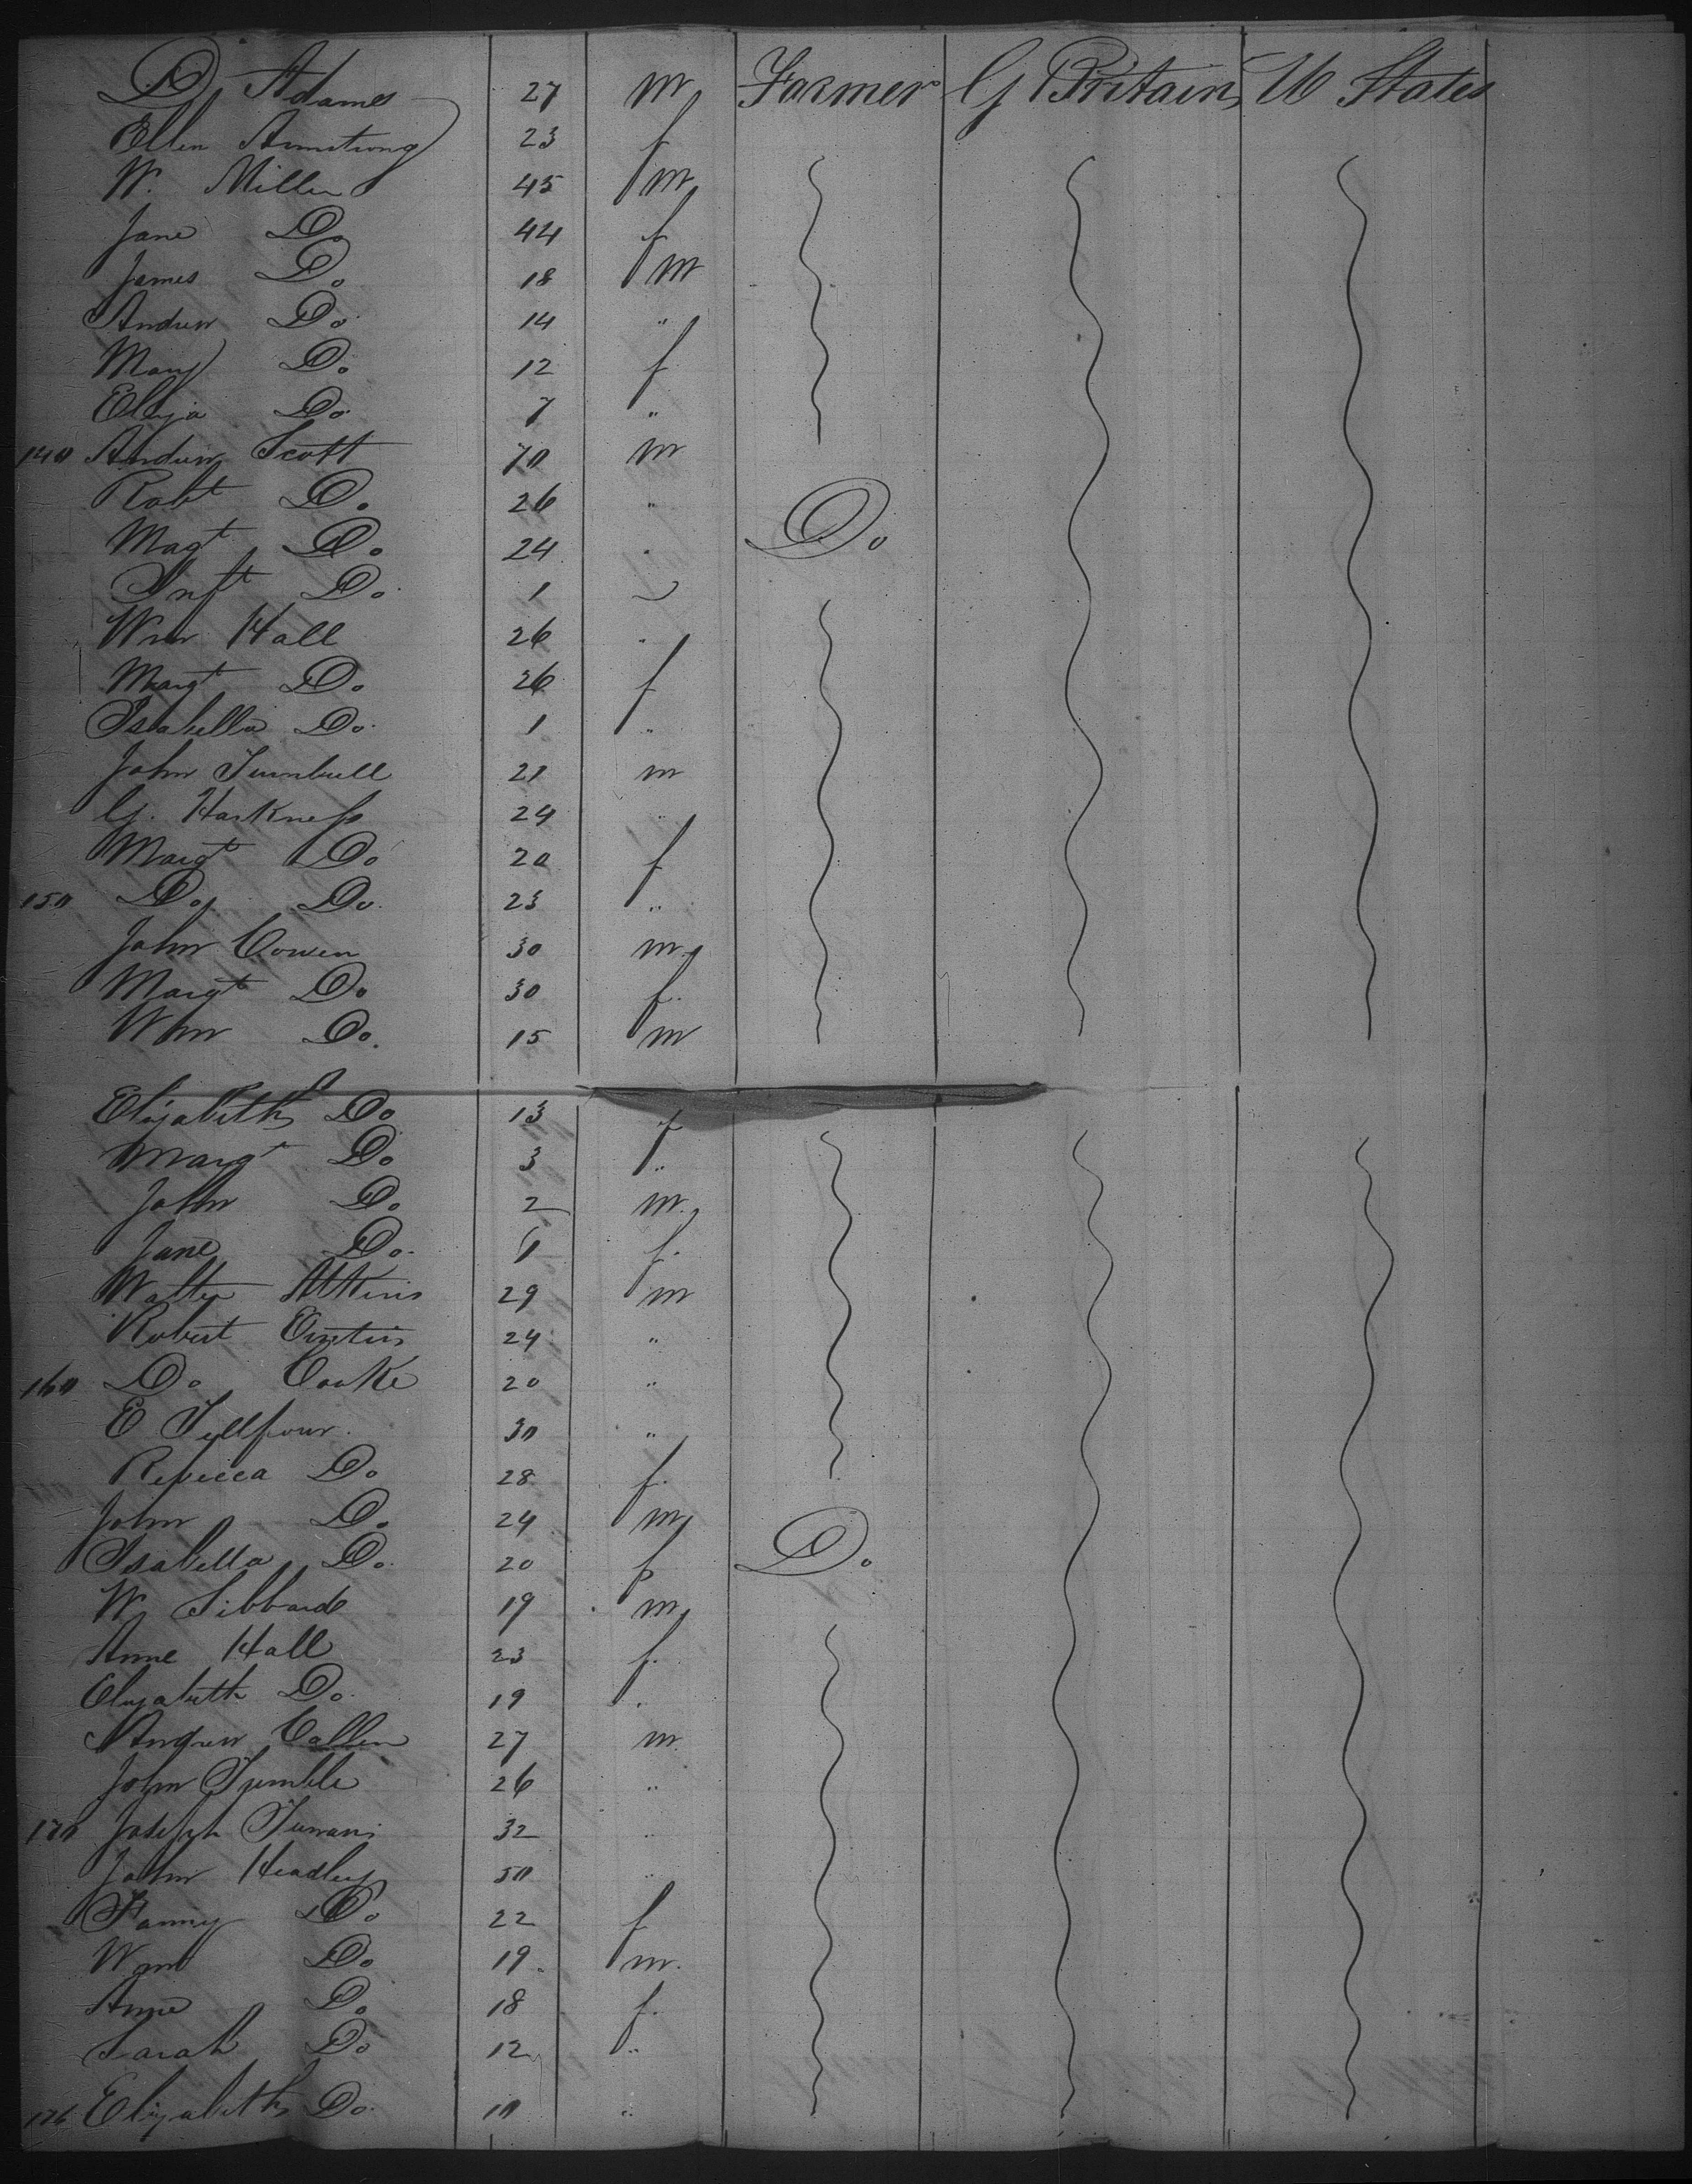 D Adams 27 m Farmer G Britain U States
Ellen Armstrong 23 f
W. Miller 45 m
Jane Do 44 f
James Do 18 m
Andrew Do 14 "
Mary Do 12 f
Eliza Do 7 "
140 Andrew Scott 70 m
Robt Do. 26 " Do
Magt Do. 24 "
Inft Do. 1
Wm Hall 26 "
Margt Do. 26 f
Isabella Do. 1 "
John Turnbull 21 m
G. Harkness 24 "
Margt Do 20 f
150 Do. Do. 23 "
John Cowen 30 m
Margt Do 30 f.
Wm Do. 15 m
Elizabeth Do 13 f
Margt Do 3 "
John Do. 2 m.
Jane Do. 1 f.
Walter Atkins 29 m
Robert 24 "
160 Do Cooke 20 "
E 30 "
Rebecca Do 28 f.
John Do. 24 m Do.
Isabella Do. 20 f
W Sibbard 19 m
Anne Hall 23 f.
Elizabeth Do. 19 "
Andrew Callen 27 m
John Trumble 26 "
170 Joseph 32 "
John Headley 50 "
Fanny Do 22 f
Wm Do 19 m.
Anne Do 18 f.
Sarah Do 12 "
176 Elizabeth Do. 10 "